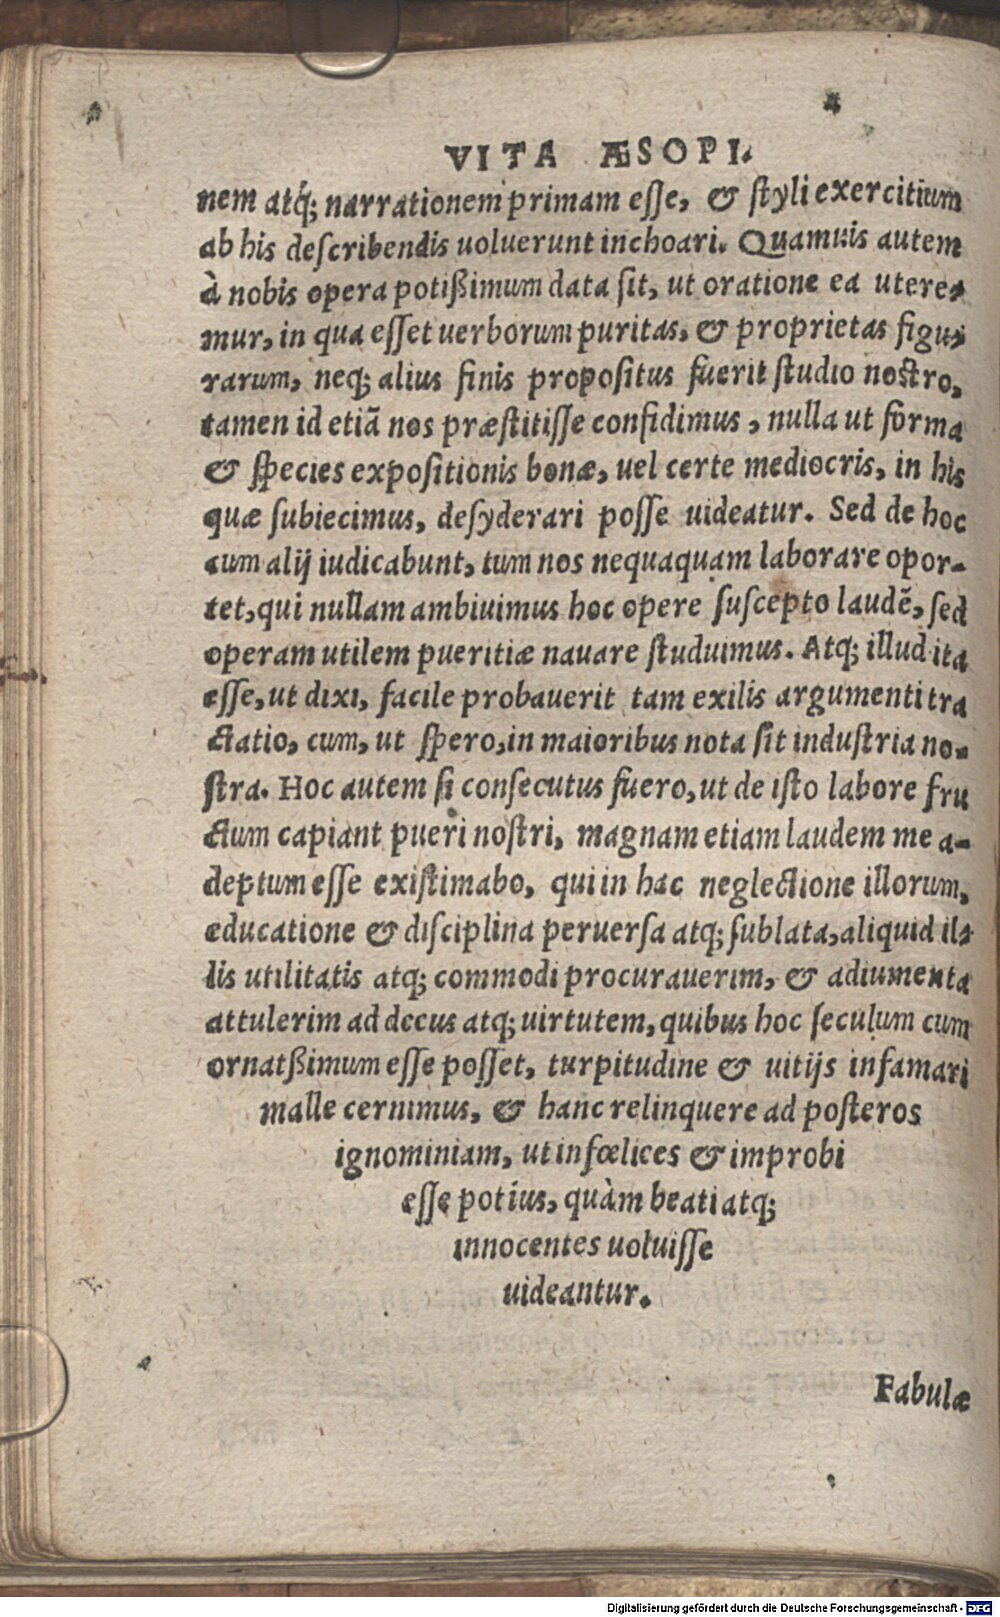 VITA ÆSOPI.
nem atq́; narrationem primam eſſe, & ſtyli exercitium
ab his deſcribendis uoluerunt inchoari. Quamuis autem
à nobis opera potißimum data ſit, ut oratione ea utere-
mur, in qua eſſet uerborum puritas, & proprietas figu-
rarum, neq; alius finis propoſitus fuerit ſtudio noſtro,
tamen id etiã nos præſtitiſſe confidimus, nulla ut forma
& ſpecies expoſitionis bonæ, uel certe mediocris, in his
quæ ſubiecimus, deſyderari poſſe uideatur. Sed de hoc
cum alij iudicabunt, tum nos nequaquam laborare opor-
tet, qui nullam ambiuimus hoc opere ſuſcepto laudẽ, ſed
operam utilem pueritiæ nauare ſtuduimus. Atq; illud ita
eſſe, ut dixi, facile probauerit tam exilis argumenti tra
ctatio, cum, ut ſpero, in maioribus nota ſit induſtria no-
ſtra. Hoc autem ſi conſecutus fuero, ut de iſto labore fru
ctum capiant pueri noſtri, magnam etiam laudem me a-
deptum eſſe exiſtimabo, qui in hac neglectione illorum,
educatione & diſciplina peruerſa atq; ſublata, aliquid il-
lis utilitatis atq; commodi procurauerim, & adiumenta
attulerim ad decus atq; uirtutem, quibus hoc ſeculum cum
ornatßimum eſſe poſſet, turpitudine & uitijs infamari
malle cernimus, & hanc relinquere ad poſteros
ignominiam, ut infœlices & improbi
eſſe potius, quàm beati atq;
innocentes uoluiſſe
uideantur.
Fabulæ
Digitalisierung gefördert durch die Deutsche Forschungsgemeinschaft - DFG